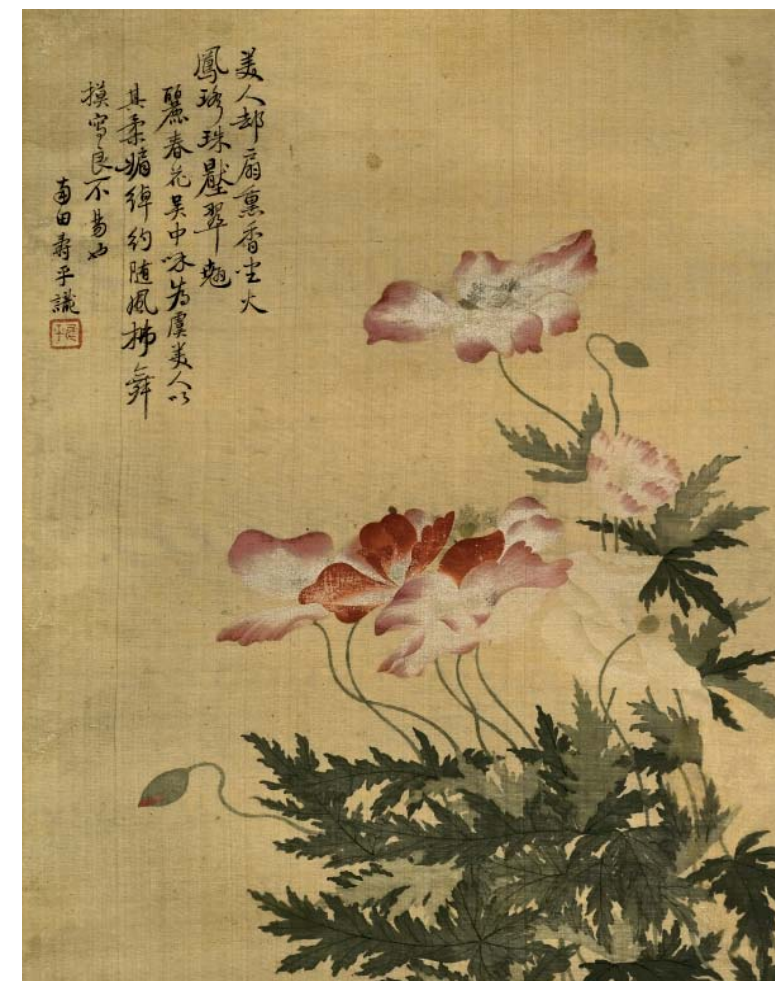 美人却扇熏香坐火
鳳珍珠壓翠翹
麗春花吴中呼為虞美人以
其柔媚綽約随風拂舞
摸寫良不易也
南田壽平識